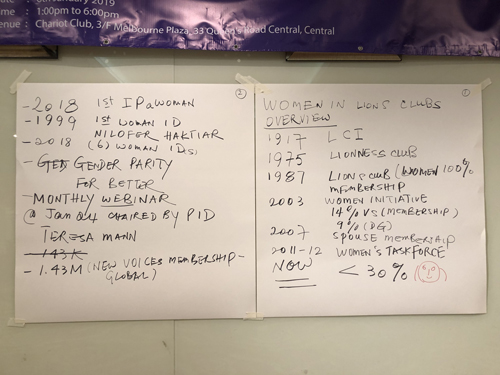 2019
: 1:00pm to 6:00pm
: Chariot Club, 3/F Melbourne Plaza, 33 Queen's Road Central, Central
2
- 2018 1st IP a WOMAN
- 1999 1st WOMAN ID
NILOFER
- 2018 (6) WOMAN IDs
- GETS GENDER PARITY
FOR BETTER
- MONTHLY WEBINAR
@ Jan 04 CHAIRED BY PID
TERESA MANN
- 143K
- 1.43M (NEW VOICES MEMBERSHIP - GLOBAL)
1
WOMEN IN LIONS CLUBS
OVERVIEW
1917 LCI
1975 LIONNESS CLUB
1987 LIONS CLUB (WOMEN 100%
MEMBERSHIP
2003 WOMEN INITIATIVE
14% VS (MEMBERSHIP)
9% (DG)
2007 SPOUSE MEMBERSHIP
2011-12 WOMEN'S TASKFORCE
NOW < 30%